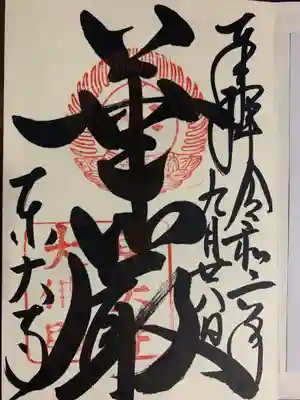 奉拝
令和二年
九月廿八日
華厳
東大寺